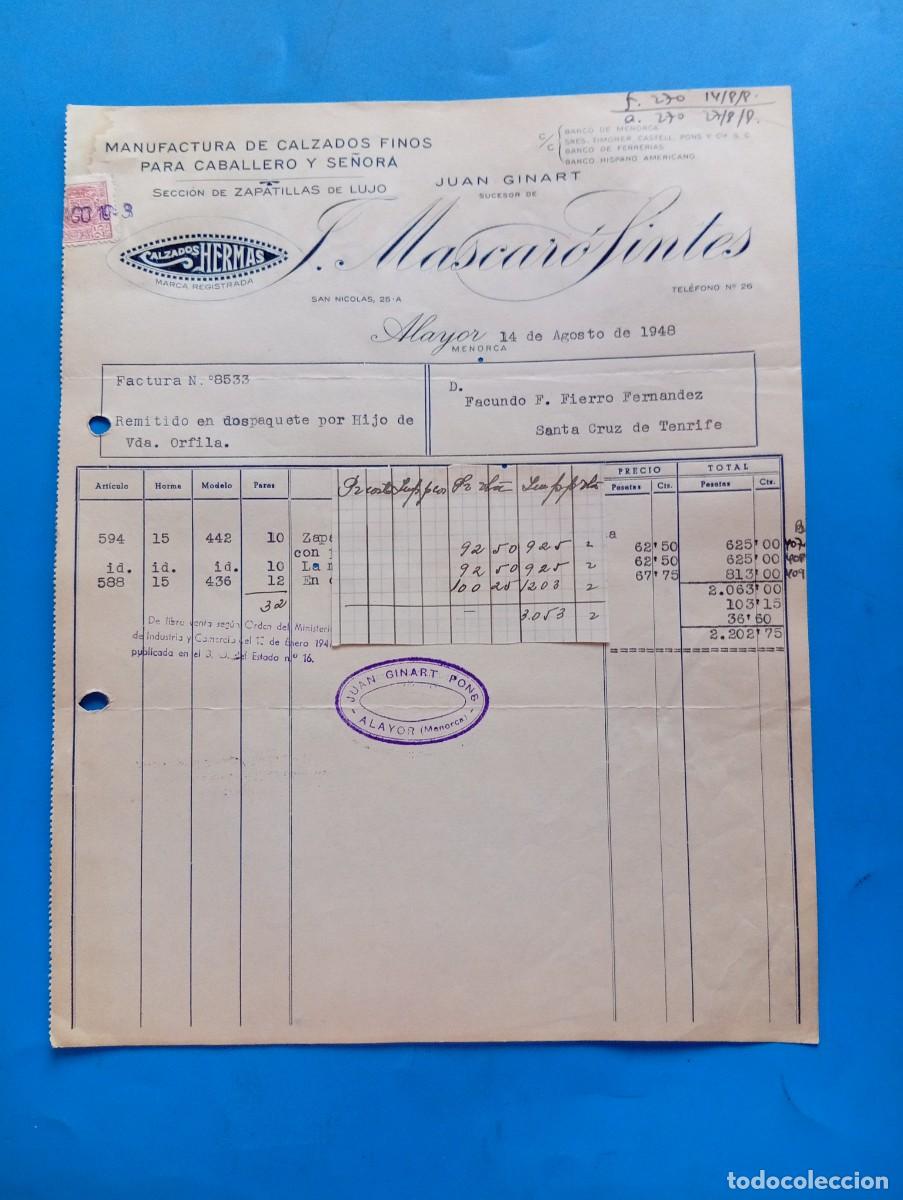 f. 270 14/8/8.
a. 270 27/8/8.
MANUFACTURA DE CALZADOS FINOS
PARA CABALLERO Y SEÑORA
SECCIÓN DE ZAPATILLAS DE LUJO
C/C
BANCO DE MENORCA
SRES. TIMONER, CASTELL, PONS Y Cía S. C.
BANCO DE FERRERIAS
BANCO HISPANO AMERICANO
JUAN GINART
SUCESOR DE
J. Mascaró Sintes
CALZADOS HERMAS
MARCA REGISTRADA
SAN NICOLAS, 25-A
TELÉFONO Nº 26
Alayor 14 de Agosto de 1948
MENORCA
Factura N.º8533
Remitido en dospaquete por Hijo de
Vda. Orfila.
D.
Facundo F. Fierro Fernandez
Santa Cruz de Tenrife
Artículo Horma Modelo Pares
PRECIO TOTAL
Pesetas Cts. Pesetas Cts.
594 15 442 10 Zapa
a 62'50 625'00 407
con
id. id. id. 10 La m
62'50 625'00 408
588 15 436 12 En
67'75 813'00 409
32
2.063'00
103'15
36'60
2.202'75
92 50 925 2
92 50 925 2
100 25 1203 2
3.053 2
De libre venta según Orden del Ministeri
de Industria y Comercio del 12 de Enero 194
publicada en el B. O. del Estado n.º 16.
JUAN GINART PONS
ALAYOR (Menorca)
todocoleccion